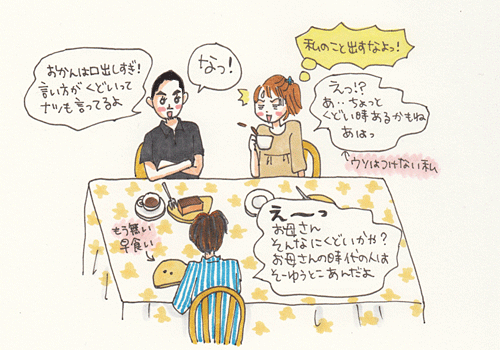 おかんは口出しすぎ!
言い方がくどいって
ナツも言ってるよ
なっ!
私のこと出すなよっ!
えっ!?
あ…ちょっと
くどい時あるかもね
あはっ
↑ウソはつけない私
もう無い
早食い
え〜っ
お母さん
そんなにくどいかや?
お母さんの時代の人は
そーゆうとこあんだよ